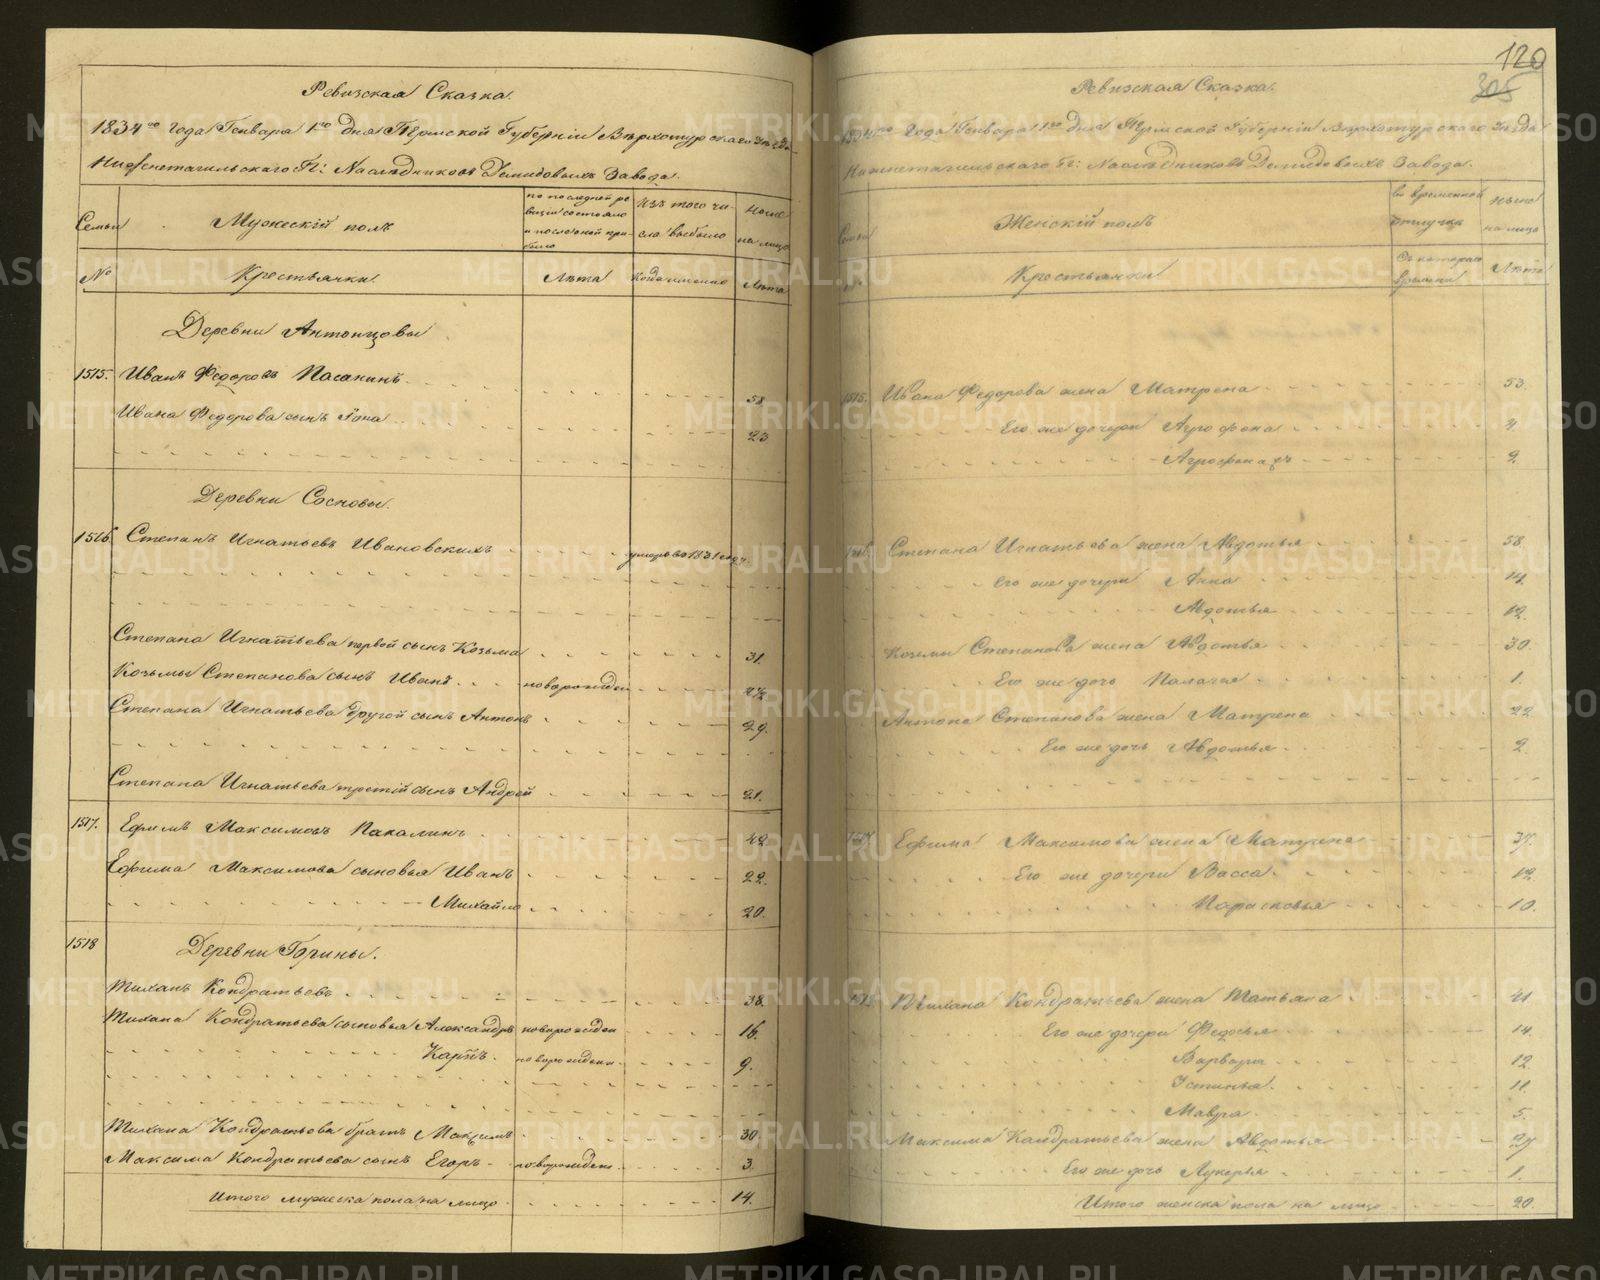 Ревизская Сказка.
1834го года Генваря 1го дня Пермской Губернiи Верхотурскаго Уезда
Нижнетагильскаго Гг: Наследниковъ Демидовыхъ Завода.
Семьи
Мужескiй полъ
по последней ревизiи состояло и после оной прибыло
Изъ того числа выбыло
Ныне на лицо
№
Крестьянки
Лѣта
Когда именно
Лѣта
Деревни Антонцовы
1515. Иванъ Федоровъ 58
Ивана Федорова сынъ 23
Деревни Сосновы.
1516. Степанъ Игнатьевъ Ивановскихъ умеръ въ 1831 году.
Степана Игнатьева первой сынъ Козьма 31.
Козьмы Степанова сынъ Иванъ новорожден
Степана Игнатьева другой сынъ Антонъ 29.
Степана Игнатьева третiй сынъ Андрей 21.
1517. Ефимъ Максимовъ 42
Ефима Максимова сыновья Иванъ 22.
Михайло 20.
1518
Деревни Горины.
Тиханъ Кондратьевъ 38.
Тихана Кондратьева сыновья Александръ новорожден 16.
Карпъ. новорожден. 9.
Тихана Кондратьева братъ Максимъ 30
Максима Кондратьева сынъ Егоръ новорожден. 3.
Итого мужеска пола на лицо 14.
120
305
Ревизская Сказка.
1834го года Генваря 1го дня Пермской Губернiи Верхотурскаго Уезда
Нижнетагильскаго Гг: Наследниковъ Демидовыхъ Завода.
Семьи
Женскiй полъ
во временной отлучке
ныне на лицо
№
Крестьянки
Съ котораго времени
Лѣта
1515. Ивана Федорова жена Матрена 53.
Его же дочери Агрофена
9
1516. Степана Игнатьева жена Авдотья 58.
Его же дочери Анна 14.
Авдотья 12.
Козьмы Степанова жена Авдотья 30.
Его же дочь Палагея 1.
Антона Степанова жена Матрена 22
Его же дочь Авдотья 2.
1517. Ефима Максимова жена Матрена 37.
Его же дочери Васса 12.
Парасковья 10.
1518. Тихана Кондратьева жена Татьяна 41.
Его же дочери Федосья 14.
Варвара 12
Устинья. 11.
Мавра 5.
Максима Кондратьева жена Авдотья 27
Его же дочь Лукерья 1.
Итого женска пола на лицо 20.
METRIKI.GASO-URAL.RU